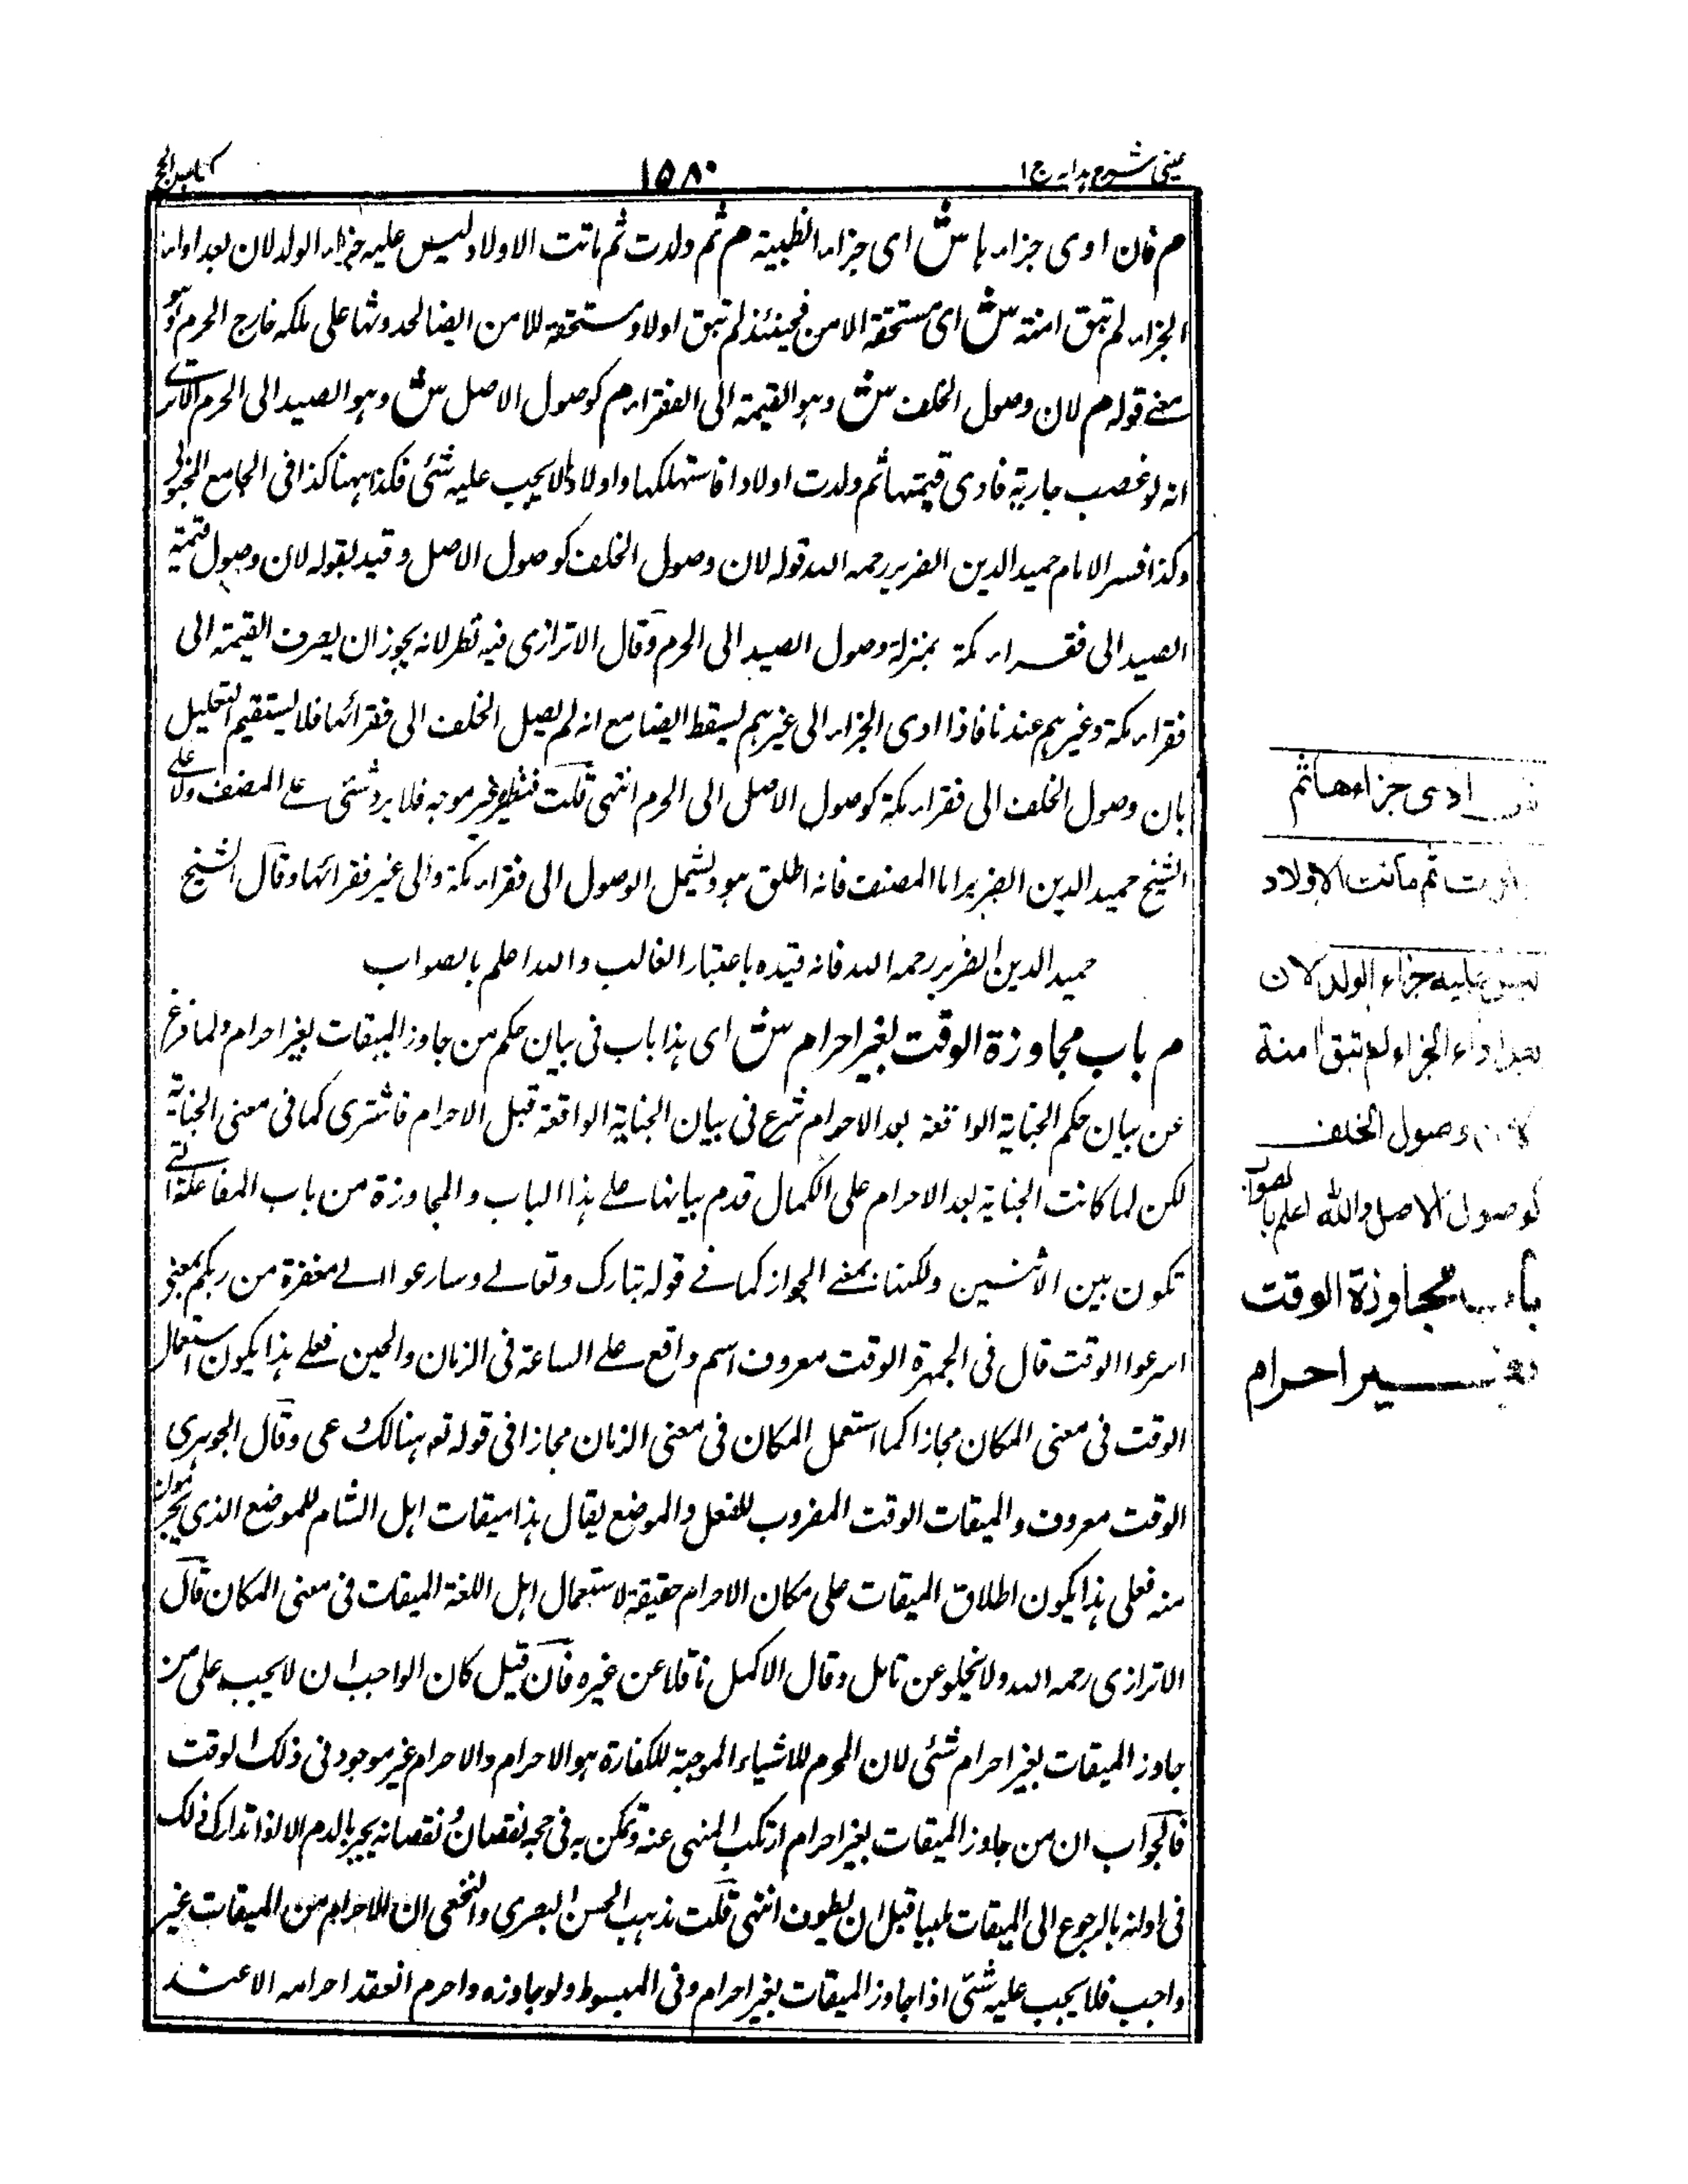 عینی شرح ہدایہ ج ۱
۱۵۸۰
کتاب الحج
م فان ادی جزاءہا ش ای جزاء الظبیۃ م ثم ولدت ثم ماتت الاولاد لیس علیہ جزاء الولد لان بعد اداء
الجزاء لم تبق امنۃ ش ای مستحقۃ الامن فحینئذ لم تبق اولادہا مستحقۃ للامن ایضا لحدوثہا علی ملکہ خارج الحرم وہو
معنے قولہ م لان وصول الخلف ش وہو القیمۃ الی الفقراء م کوصول الاصل ش وہو الصید الی الحرم الاترے
انہ لو غصب جاریۃ فادی قیمتہا ثم ولدت اولادا فاستہلکہا واولادہا لا یجب علیہ شئی فکذا ہہنا کذا فی الجامع المحبوبی
وکذا فسر الامام حمید الدین الضریر رحمہ اللہ قولہ لان وصول الخلف کوصول الاصل وقید بقولہ لان وصول قیمتہ
الصید الی فقراء مکۃ بمنزلۃ وصول الصید الی الحرم وقال الاترازی فیہ نظر لانہ یجوز ان یصرف القیمۃ الی
فقراء مکۃ وغیرہم عندنا فاذا ادی الجزاء الی غیرہم یسقط ایضا مع انہ لم یصل الخلف الی فقرائہا فلا یستقیم التعلیل
بان وصول الخلف الی فقراء مکۃ کوصول الاصل الی الحرم انتہی قلت فنظرہ غیر موجہ فلا یرد شئی علے المصنف ولا علے
الشیخ حمید الدین الضریر اما المصنف فانہ اطلق ہو ویشمل الوصول الی فقراء مکۃ والی غیر فقرائہا وقال الشیخ
حمید الدین الضریر رحمہ اللہ فانہ قیدہ باعتبار الغالب واللہ اعلم بالصواب
م باب مجاوزة الوقت بغیر احرام ش ای ہذا باب فی بیان حکم من جاوز المیقات بغیر احرام ولما فرغ
عن بیان حکم الجنایۃ الواقعۃ بعد الاحرام شرع فی بیان الجنایۃ الواقعۃ قبل الاحرام فاشترکا فی معنی الجنایۃ
لکن لما کانت الجنایۃ بعد الاحرام علی الکمال قدم بیانہا علے ہذا الباب والمجاوزة من باب المفاعلۃ التے
تکون بین الاثنین ولکنہا بمعنے الجواز کما فے قولہ تبارک وتعالے وسارعوا الے مغفرة من ربکم بمعنی
اسرعوا الوقت قال فی الجمہرة الوقت معروف اسم واقع علے الساعۃ فی الزمان والحین فعلے ہذا یکون استعمال
الوقت فی معنی المکان مجازا کما استعمل المکان فی معنی الزمان مجازا فی قولہ تع ہنالک دعی وقال الجوہری
الوقت معروف والمیقات الوقت المضروب للفعل والموضع یقال ہذا میقات اہل الشام للموضع الذی یحرمون
منہ فعلی ہذا یکون اطلاق المیقات علی مکان الاحرام حقیقۃ لاستعمال اہل اللغۃ المیقات فی معنی المکان قال
الاترازی رحمہ اللہ ولا یخلو عن تامل وقال الاکمل ناقلا عن غیرہ فان قیل کان الواجب ان لا یجب علی من
جاوز المیقات بغیر احرام شئی لان المحرم للاشیاء الموجبۃ للکفارة ہو الاحرام والاحرام غیر موجود فی ذلک الوقت
فالجواب ان من جاوز المیقات بغیر احرام ارتکب المنہی عنہ وتمکن بہ فی حجہ نقصان ونقصانہ یجبر بالدم الا اذا تدارک ذلک
فی اوانہ بالرجوع الی المیقات ملبیا قبل ان یطوف انتہی قلت ذہب الحسن البصری والنخعی ان الاحرام من المیقات غیر
واجب فلا یجب علیہ شئی اذا جاوز المیقات بغیر احرام وفی المبسوط ولو جاوزہ واحرم انعقد احرامہ الا عند
ادی جزاءها ثم
ثم ماتت الاولاد
ليس عليه جزاء الولد لان
بعد اداء الجزاء لم تبق امنة
وصول الخلف
كوصول الاصل والله اعلم بالصواب
باب مجاوزة الوقت
بغير احرام